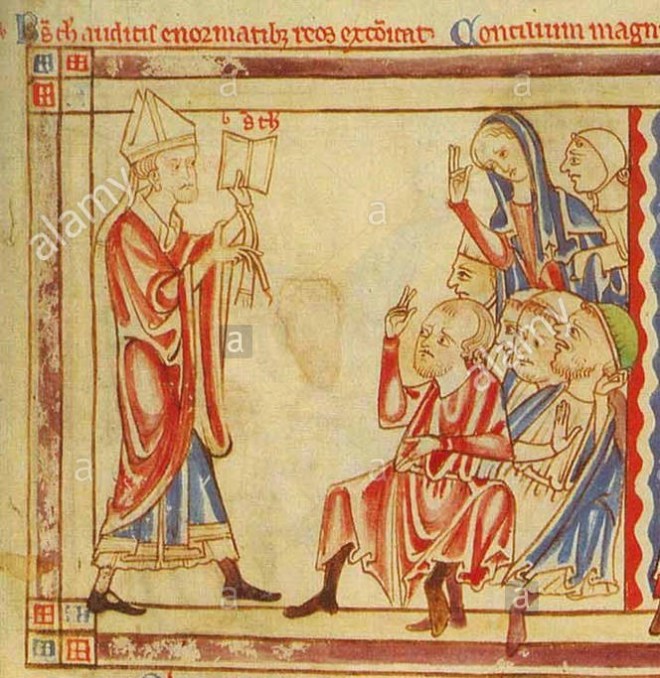 B̄s th̄ auditis enormatibꝫ reos excōicat Conciluim magn
b s̄ th̄
alamy
a
a
a
a
alamy
a
a
a
a